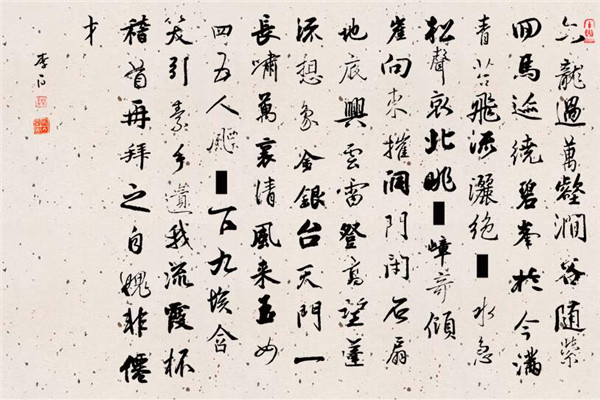 六龍過萬壑澗谷隨縈
回馬迹繞碧峯於今滿
青苔飛流灑絕水急
松聲哀北眺嶂奇傾
崖向東摧洞門閉石扇
地底興雲雷登高望蓬
瀛想象金銀台天門一
長嘯萬裏清風来玉女
四五人飄下九垓含
笑引素手遺我流霞杯
稽首再拜之自愧非僊
才
李白